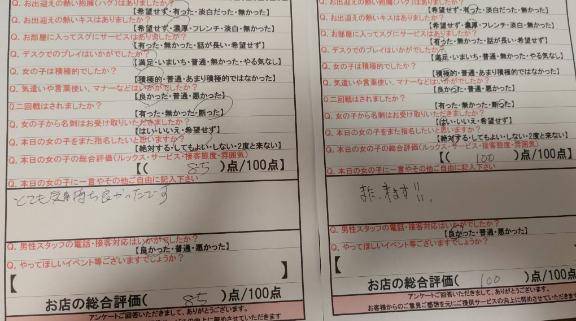 Q. お出迎えの熱い抱擁(ハグ)はありましたか?
【希望せず・有った・淡白だった・無かった】
Q. お出迎えの熱いキスはありましたか?
【希望せず・濃厚・フレンチ・淡白・無かった】
Q. お部屋に入ってスグにサービスはありましたか?
【有った・無かった・話が長い・希望せず】
Q. デスクでのプレイはいかがでしたか?
【満足・いまいち・普通・無かった・やる気なし】
Q. 女の子は積極的でしたか?
【積極的・普通・あまり積極的ではなかった】
Q. 気遣いや言葉使い、マナーなどはいかがでしたか?
【良かった・普通・悪かった】
Q. 二回戦はされましたか?
【有った・無かった・断った】
Q. 女の子から名刺はお受け取りいただきましたか?
【はい・いいえ・希望せず】
Q. 本日の女の子をまた指名したいと思いますか?
【絶対する・してもよい・しない・2度と来ない】
Q. 本日の女の子の総合評価(ルックス・サービス・接客態度・雰囲気)
【( 85 )点/100点】
Q. 本日の女の子に一言やその他ご自由に記入下さい
とても気持ち良かったです
Q. 男性スタッフの電話・接客対応はいかがでしたか?
【良かった・普通・悪かった】
Q. やってほしいイベント等ございますでしょうか?
【 】
お店の総合評価( 85 )点/100点
アンケートご回答いただきまして、ありがとうございます。
【希望せず・有った・淡白だった・無かった】
Q. お出迎えの熱いキスはありましたか?
【希望せず・濃厚・フレンチ・淡白・無かった】
Q. お部屋に入ってスグにサービスはありましたか?
【有った・無かった・話が長い・希望せず】
Q. デスクでのプレイはいかがでしたか?
【満足・いまいち・普通・無かった・やる気なし】
Q. 女の子は積極的でしたか?
【積極的・普通・あまり積極的ではなかった】
Q. 気遣いや言葉使い、マナーなどはいかがでしたか?
【良かった・普通・悪かった】
Q 二回戦はされましたか?
【有った・無かった・断った】
Q. 女の子から名刺はお受け取りいただきましたか?
【はい・いいえ・希望せず】
Q. 本日の女の子をまた指名したいと思いますか?
【絶対する・してもよい・しない・2度と来ない】
Q. 本日の女の子の総合評価(ルックス・サービス・接客態度・雰囲気)
【( 100 )点/100点】
Q. 本日の女の子に一言やその他ご自由に記入下さい
また、きます!!
Q. 男性スタッフの電話・接客対応はいかがでしたか?
【良かった・普通・悪かった】
Q. やってほしいイベント等ございますでしょうか?
【 】
お店の総合評価( 100 )点/100点
アンケートご回答いただきまして、ありがとうございます。
お客様からのご意見ご感想を元にご提供サービスの向上に努めさせていただきます